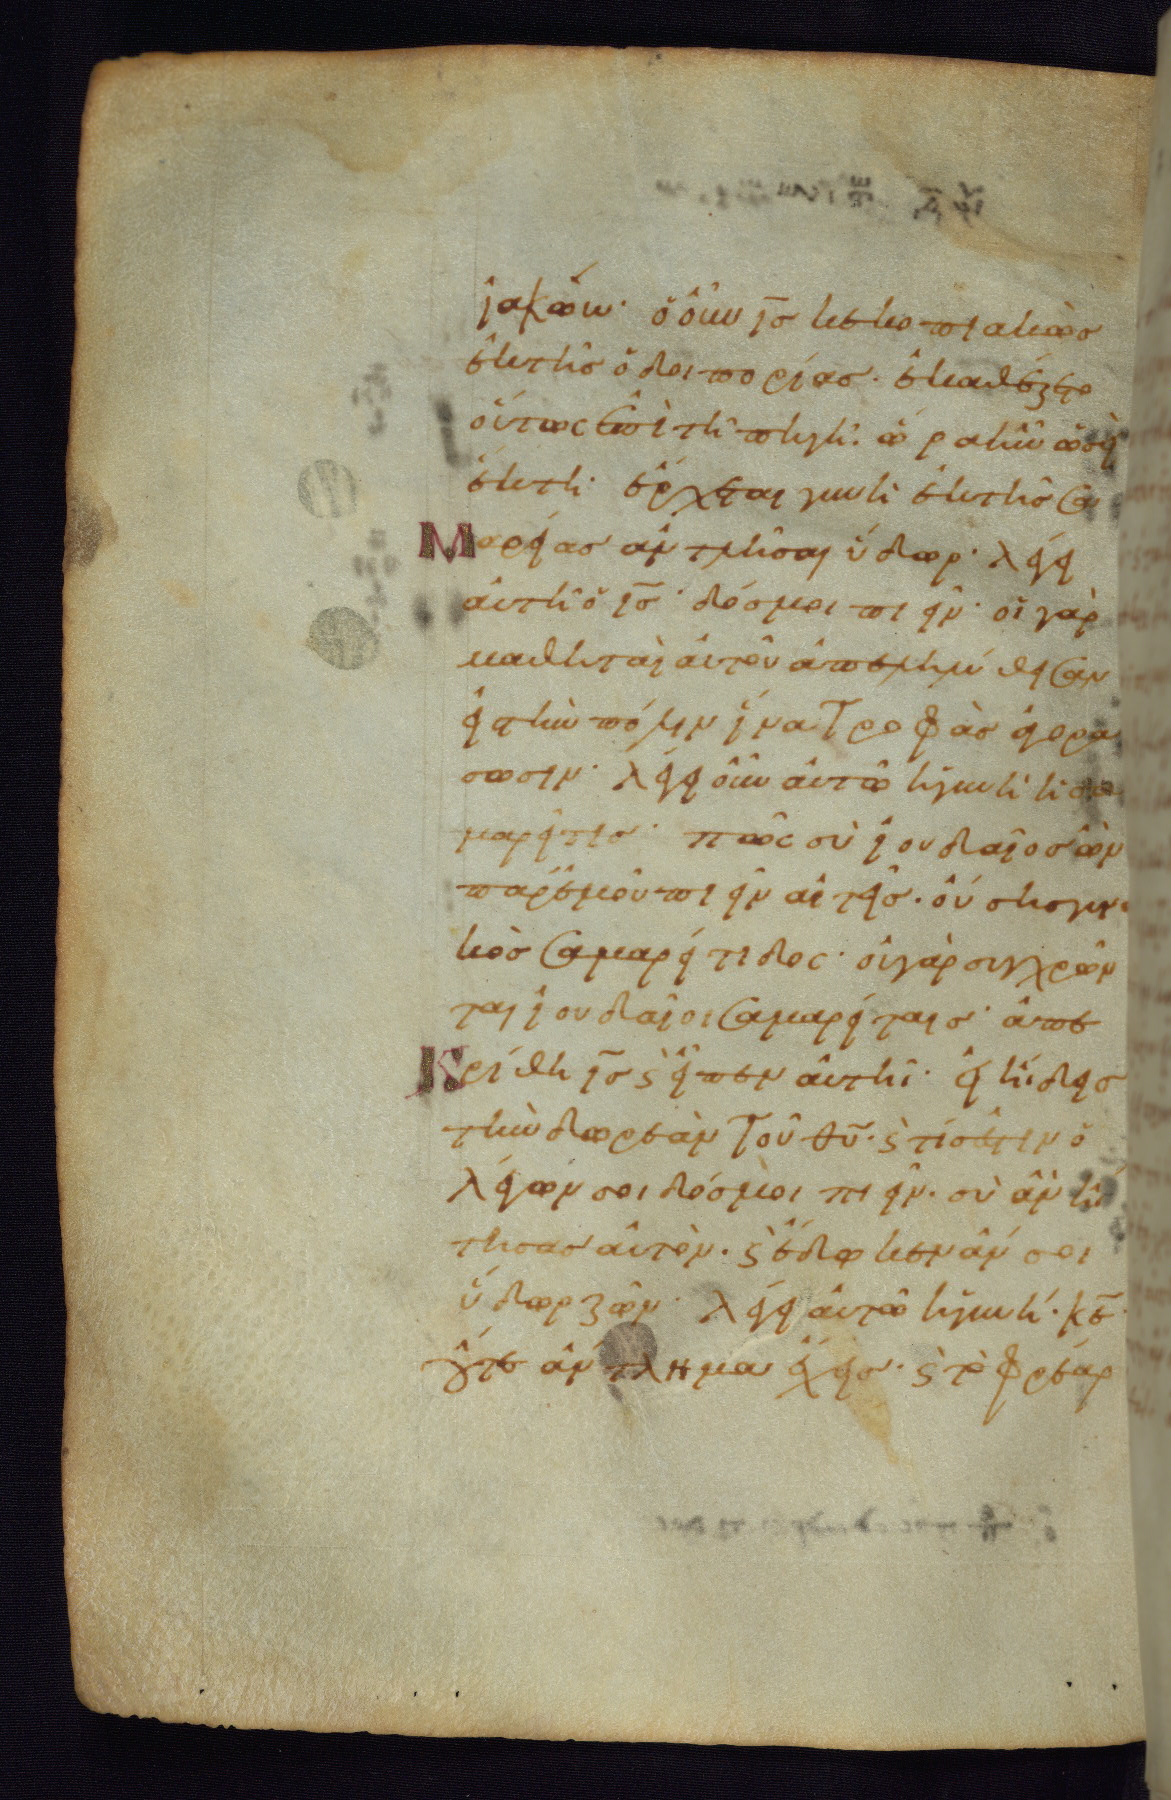 ἰακώβ· ὁ οὖν ι̅ς̅ κεκοπιακὼς
ἐκ τῆς ὁδοιπορίας· ἐκαθέζετο
οὕτως ἐπὶ τῆ πηγῆ· ὥρα ἦν ὡσεὶ
ἕκτη· ἔρχεται γυνὴ ἐκ τῆς σα
μαρείας ἀντλῆσαι ὕδωρ· λέγει
αὐτῆ ὁ ι̅ς̅· δός μοι πιεῖν· οἱ γὰρ
μαθηταὶ αὐτοῦ ἀπεληλύθεισαν
εἰς τὴν πόλιν ἵνα τροφὰς ἀγορα
σωσιν· λέγει οὖν αὐτῶ ἡ γυνὴ ἡ σα
μαρεῖτις· πῶς σὺ ἰουδαῖος ὢν
παρ' ἐμοῦ πιεῖν αἰτεῖς· οὔσης γυναι
κὸς σαμαρείτιδος· οὐ γὰρ συγχρῶν
ται ἰουδαῖοι σαμαρείταις· ἀπε
κρίθη ι̅ς̅ ϗ εἶπεν αὐτῆ· εἰ ἤδεις
τὴν δωρεὰν τοῦ θ̅υ̅· ϗ τίς ἐστιν ὁ
λέγων σοι δός μοι πιεῖν· σὺ ἂν ἤ
τησας αὐτὸν· ϗ ἔδωκεν ἄν σοι
ὕδωρ ζῶν· λέγει αὐτῶ ἡ γυνή· κ̅ε̅·
οὔτε ἄντλημα ἔχεις· ϗ τὸ φρέαρ